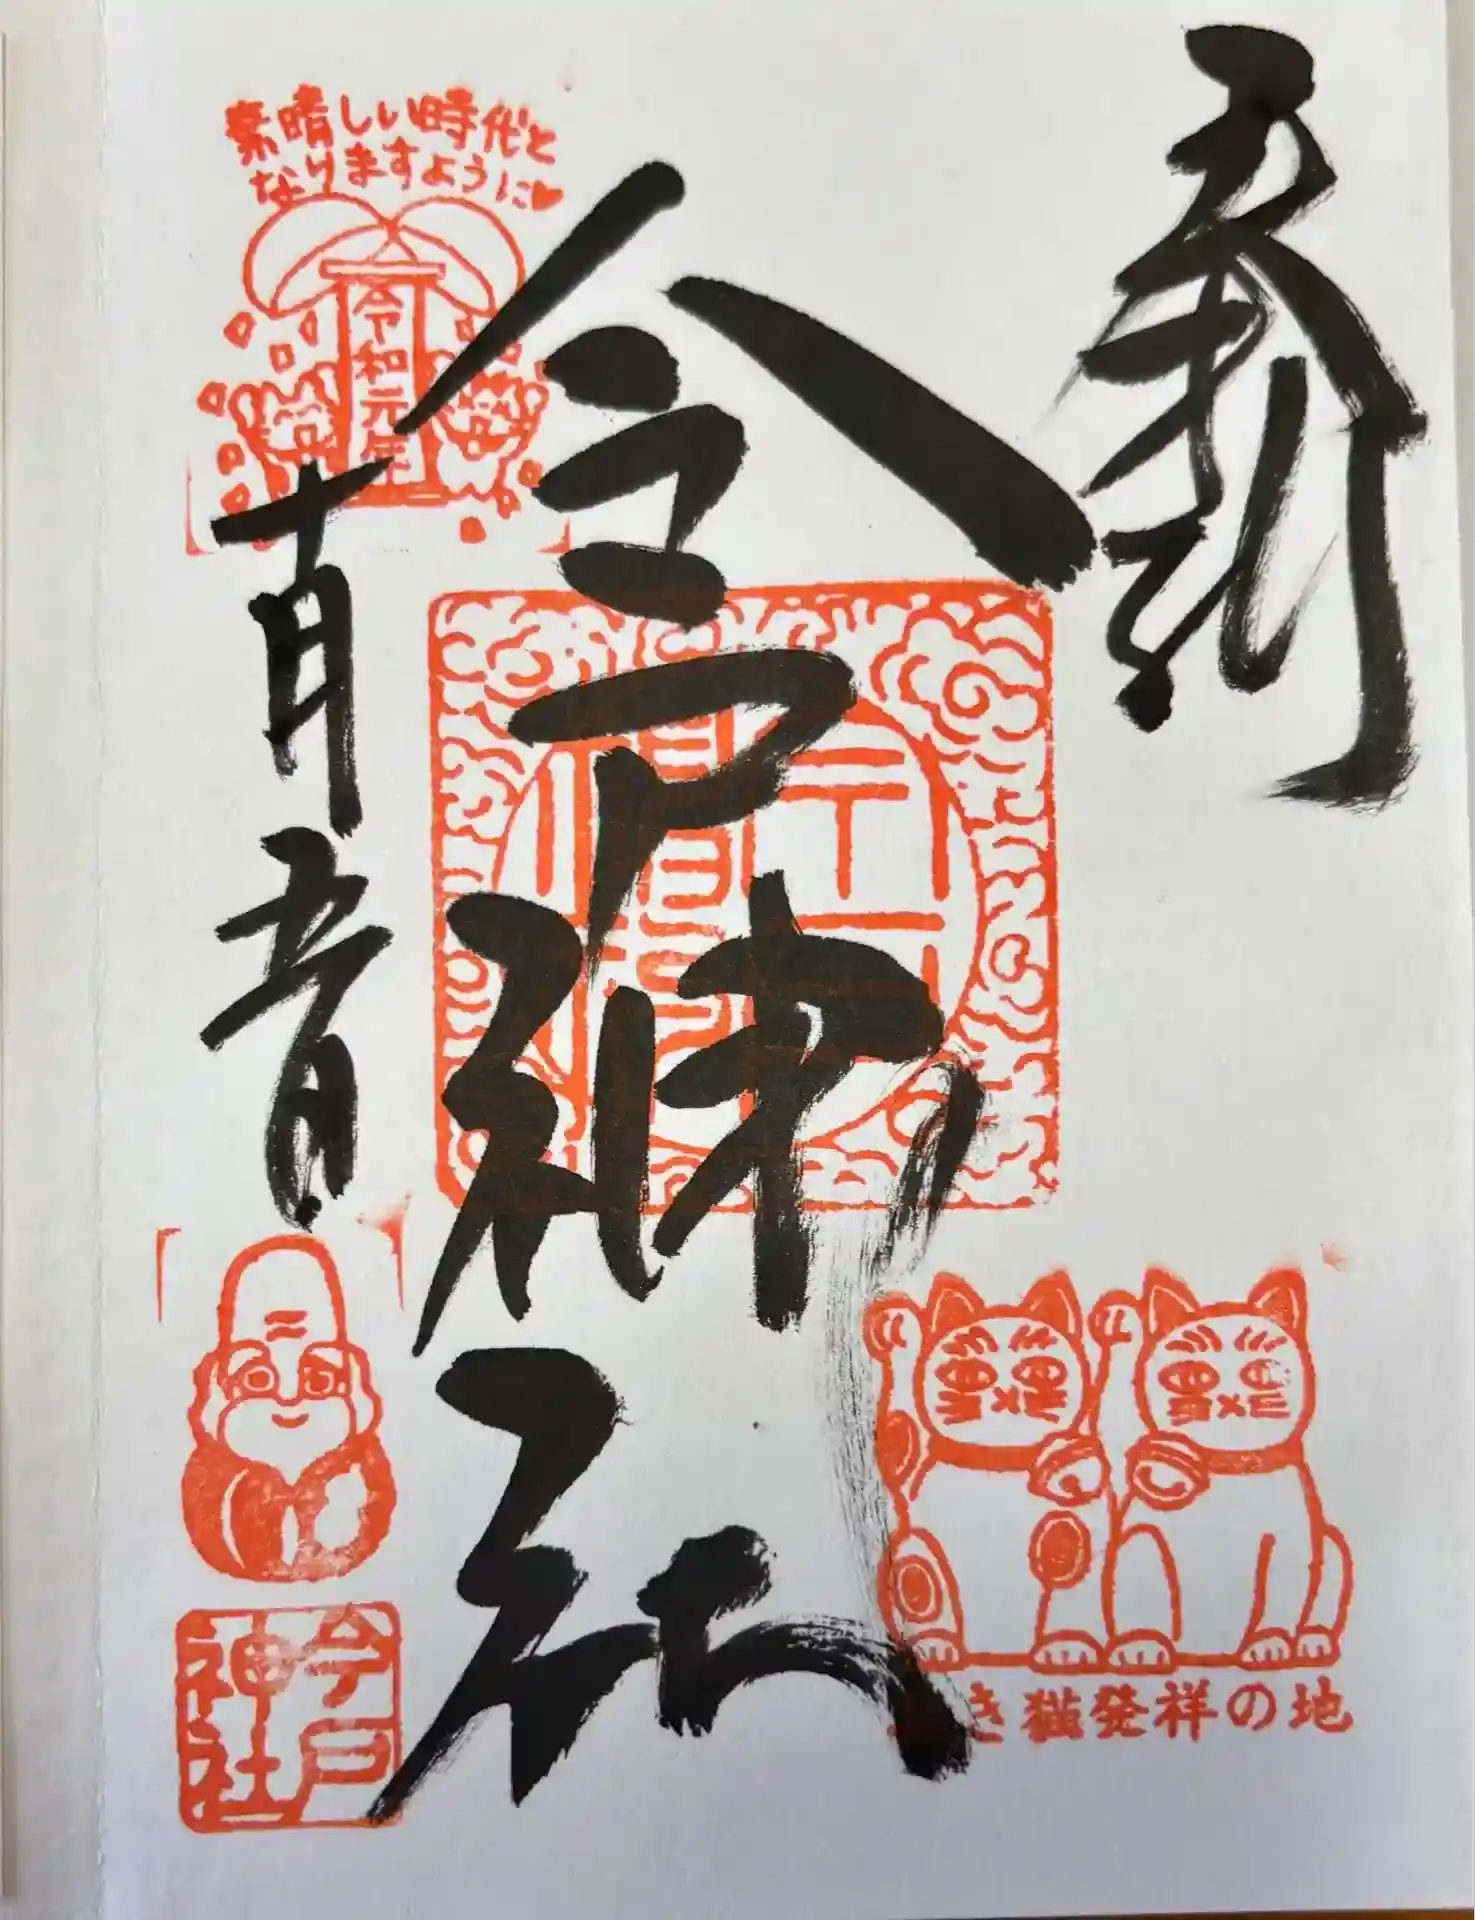 奉拝
素晴しい時代と
なりますように♥
令和元年
今戸神社
十月五日
き猫発祥の地
今戸
神社